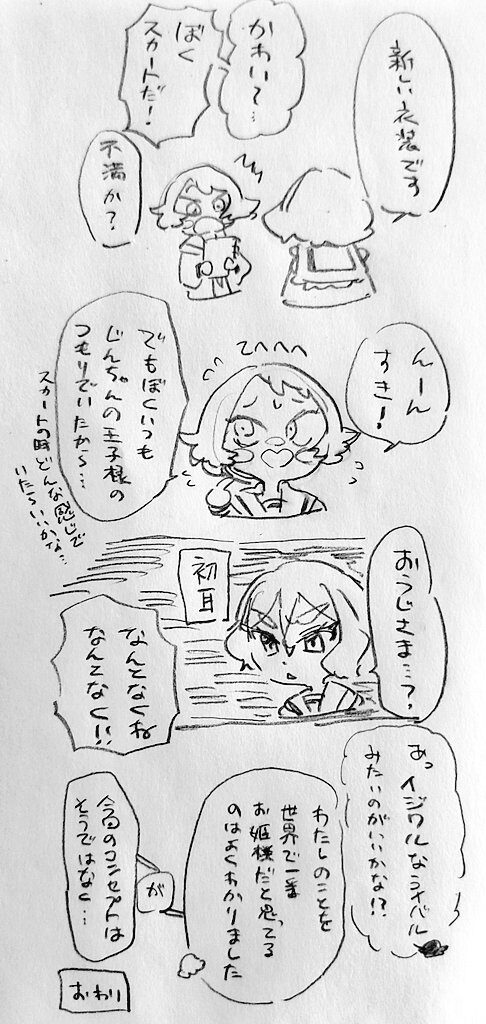 新しい衣装です
かわいて…
ぼく
スカートだ！
不満か？
んーん
すき！
てへへへ
でもぼくいつも
じんちゃんの王子様の
つもりでいたから…
スカートの時どんな感じで
いたらいいかな…
おうじさま…？
初耳
なんとなくね
なんとなく!!
あっ イジワルなライバル
みたいのがいいかな!?
わたしのことを
世界で一番
お姫様だと思ってる
のはよくわかりました
が
今回のコンセプトは
そうではなく…
おわり